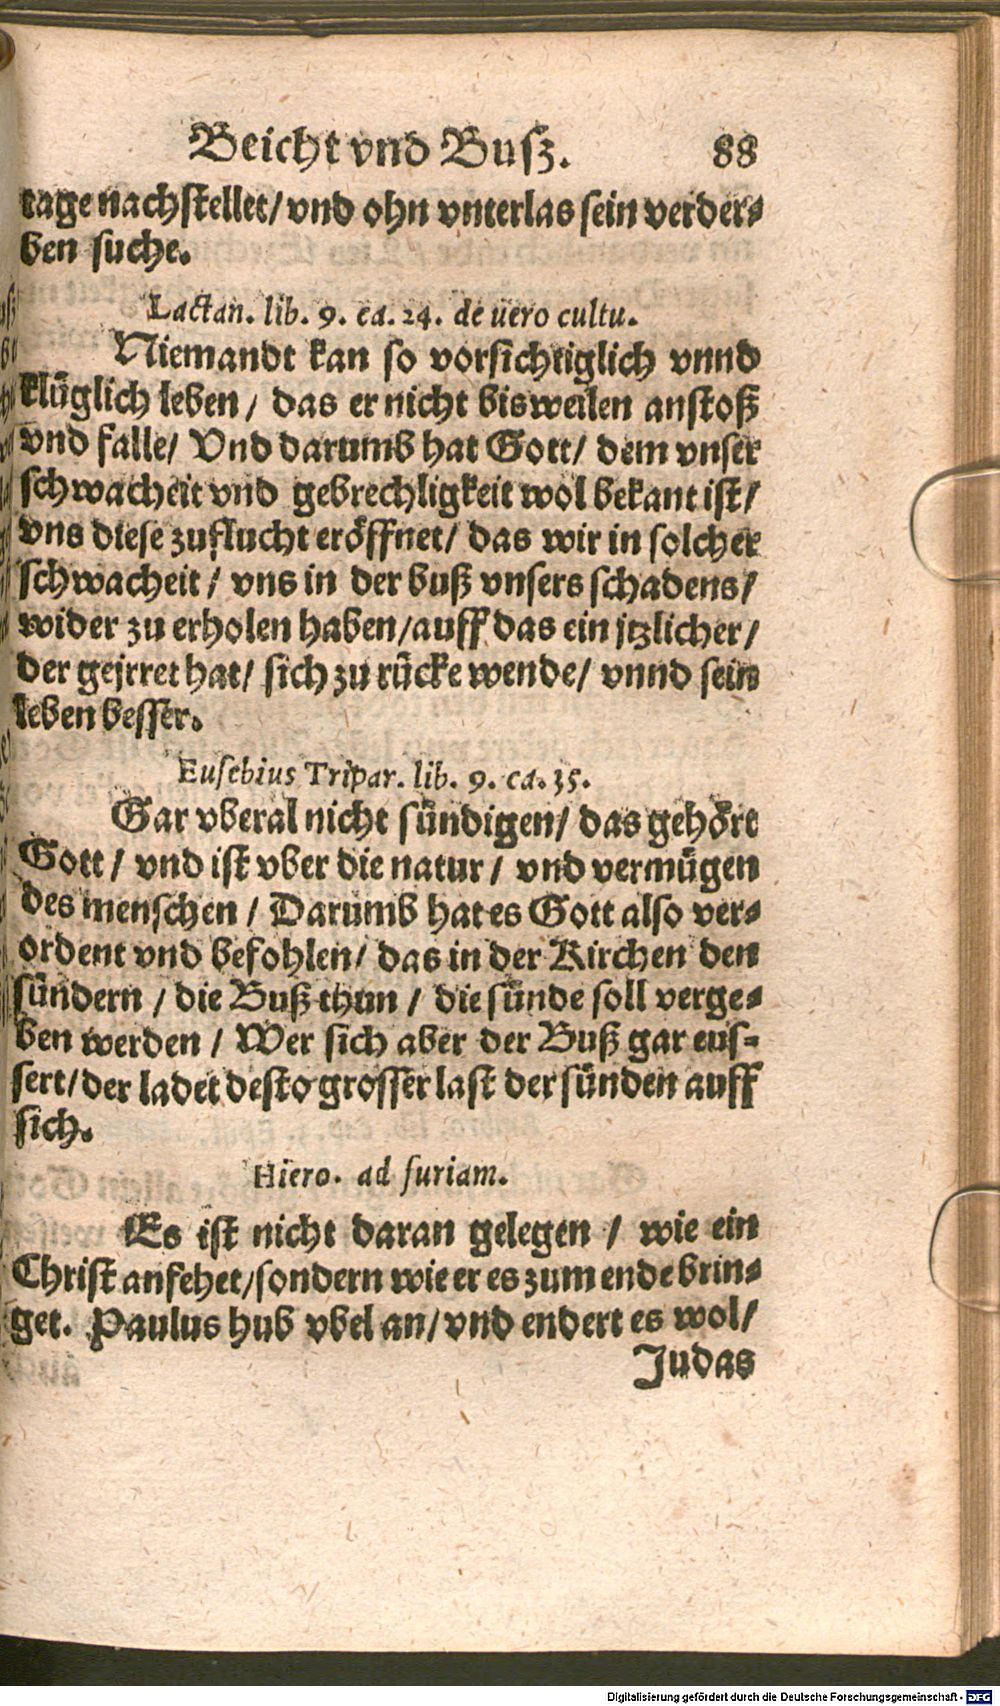 Beicht vnd Busz. 88
tage nachstellet/ vnd ohn vnterlas sein verder⸗
ben suche.
Lactan. lib. 9. ca. 24. de uero cultu.
Niemandt kan so vorsichtiglich vnnd
klüglich leben/ das er nicht bisweilen anstoß
vnd falle/ Vnd darumb hat Gott/ dem vnser
schwacheit vnd gebrechligkeit wol bekant ist/
vns diese zuflucht eröffnet/ das wir in solcher
schwacheit/ vns in der buß vnsers schadens/
wider zu erholen haben/ auff das ein jtzlicher/
der gejrret hat/ sich zu rücke wende/ vnnd sein
leben besser.
Eusebius Tripar. lib. 9. ca. 35.
Gar vberal nicht sündigen/ das gehört
Gott/ vnd ist vber die natur/ vnd vermügen
des menschen/ Darumb hat es Gott also ver⸗
ordent vnd befohlen/ das in der Kirchen den
sündern/ die Buß thun/ die sünde soll verge⸗
ben werden/ Wer sich aber der Buß gar eus⸗
sert/ der ladet desto grosser last der sünden auff
sich.
Hiero. ad furiam.
Es ist nicht daran gelegen/ wie ein
Christ anfehet/ sondern wie er es zum ende brin⸗
get. Paulus hub vbel an/ vnd endert es wol/
Judas
Digitalisierung gefördert durch die Deutsche Forschungsgemeinschaft - DFG